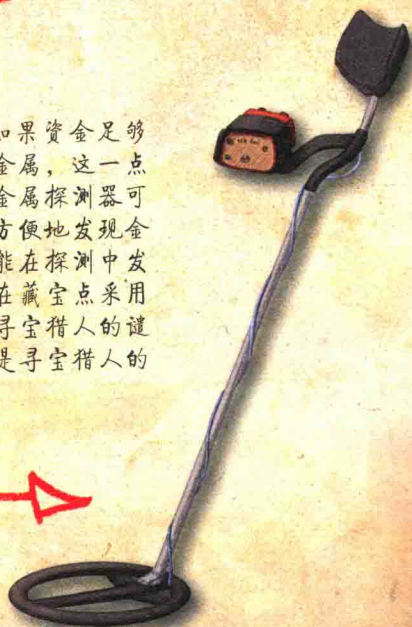 如果资金足够
金属，这一点
金属探测器可
方便地发现金
能在探测中发
在藏宝点采用
寻宝猎人的谴
是寻宝猎人的